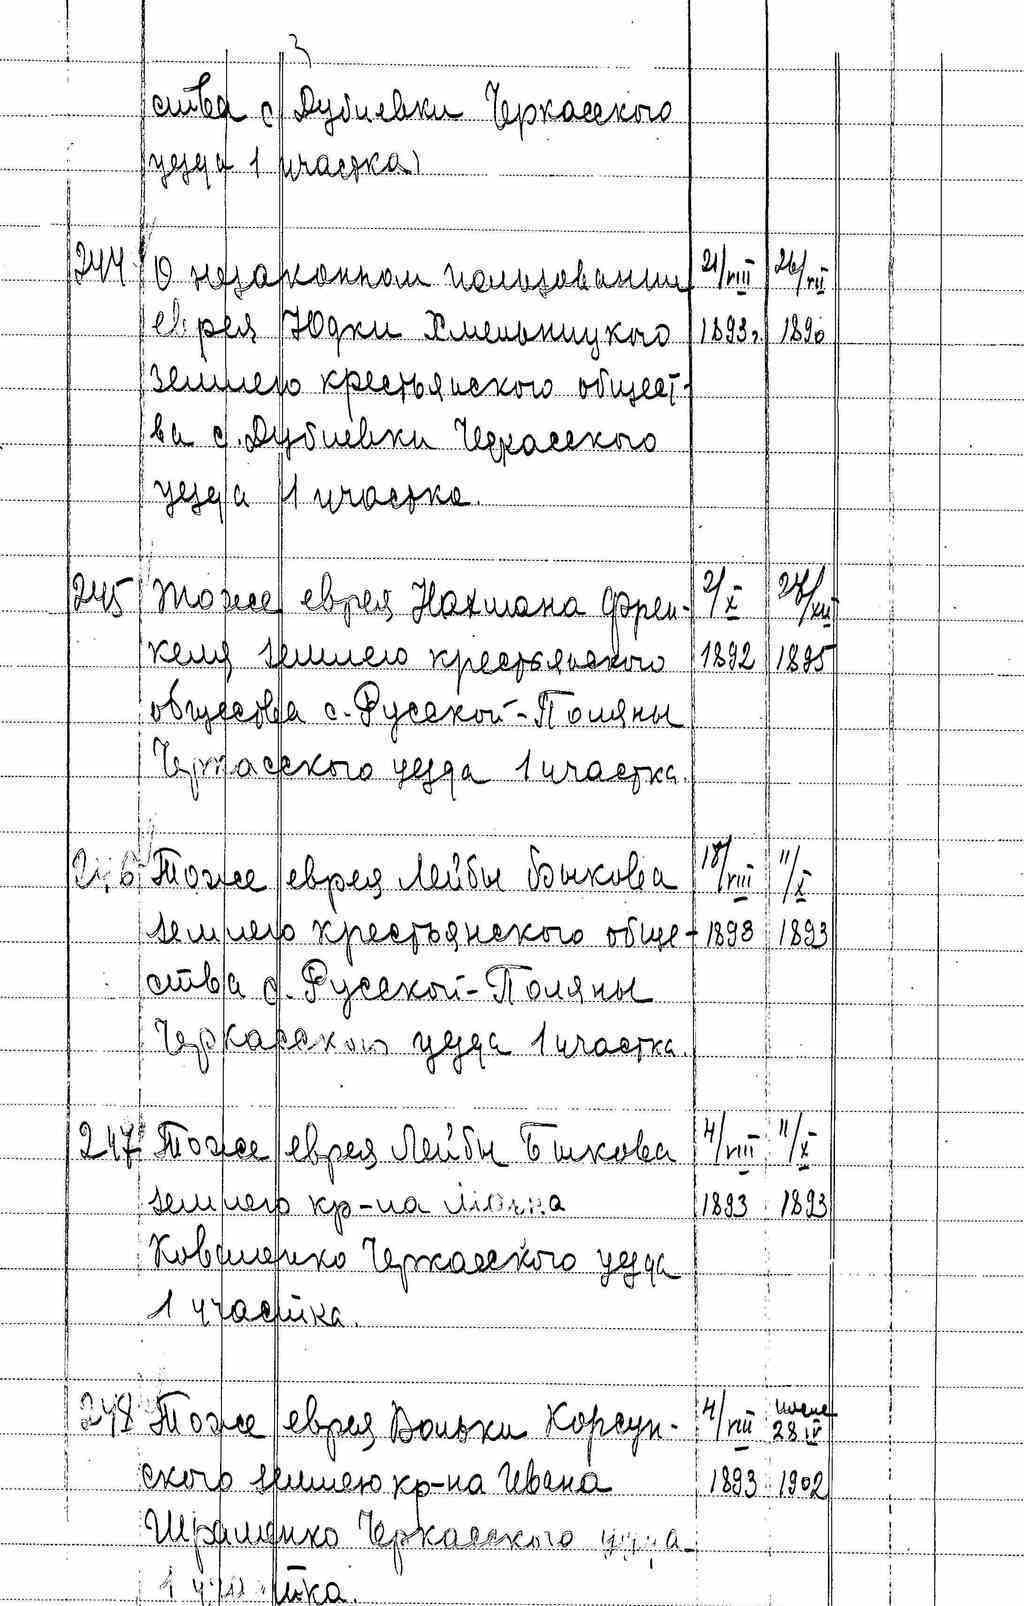 3
ства с Дубиевки Черкасского
уезда 1 участка
244 О незаконном пользовании 21/VIII 26/VII
еврея Юдки Хмельницкого 1893г. 1890
землею крестьянского общест-
ва с. Дубиевки Черкасского
уезда 1 участка.
245 Тоже еврея Нахмана Френ- 2/X 28/XII
келя землею крестьянского 1892 1895
общества с. Русской-Поляны
Черкасского уезда 1 участка.
246 Тоже еврея Лейбы Быкова 18/VIII 11/X
землею крестьянского обще- 1893 1893
ства с. Русской-Поляны
Черкасского уезда 1 участка.
247 Тоже еврея Лейбы Быкова 4/VIII 11/X
землею кр-на 1893 1893
Коваленко Черкасского уезда
1 участка.
248 Тоже еврея Вольки Корсун- 4/VIII после 28 IV
ского землею кр-на Ивана 1893 1902
Шраменко Черкасского уезда
1 участка.